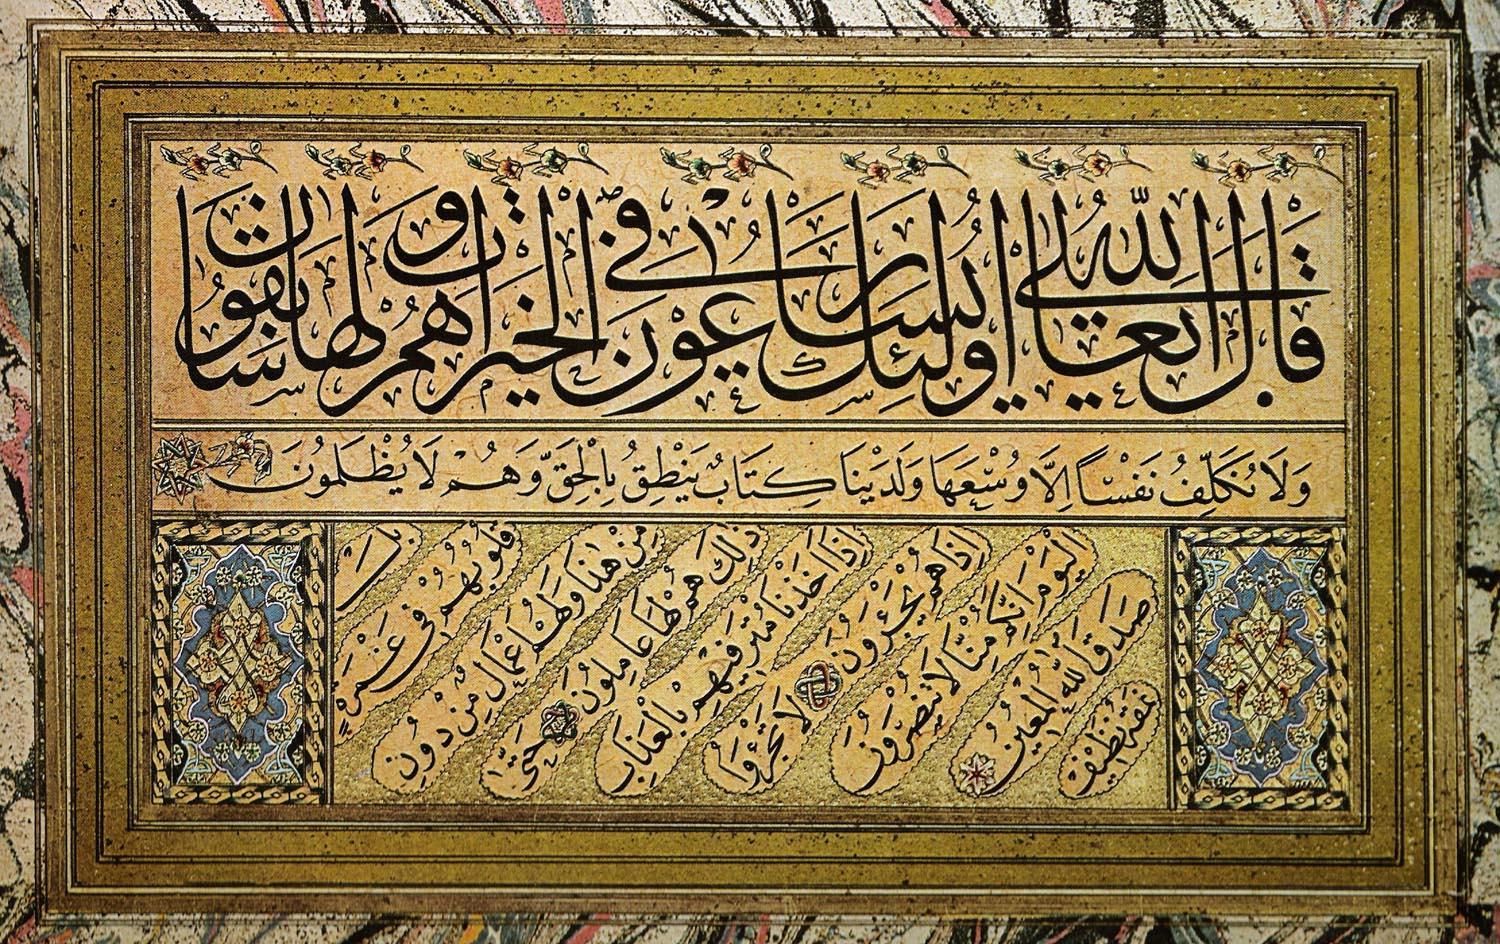 قَالَ اللهُ تَعَالَى اُولٰئِكَ يُسَارِعُونَ فِي الْخَيْرَاتِ وَهُمْ لَهَا سَابِقُونَ
وَلَا نُكَلِّفُ نَفْسًا اِلَّا وُسْعَهَا وَلَدَيْنَا كِتَابٌ يَنْطِقُ بِالْحَقِّ وَهُمْ لَا يُظْلَمُونَ
بَلْ
قُلُوبُهُمْ فِي غَمْرَةٍ
مِنْ هٰذَا وَلَهُمْ اَعْمَالٌ مِنْ دُونِ
ذٰلِكَ هُمْ لَهَا عَامِلُونَ حَتّٰى
اِذَا اَخَذْنَا مُتْرَفِيهِمْ بِالْعَذَابِ
اِذَا هُمْ يَجْئَرُونَ لَا تَجْئَرُوا
الْيَوْمَ اِنَّكُمْ مِنَّا لَا تُنْصَرُونَ
صَدَقَ اللهُ الْمُعِينُ
نمقه نظيف